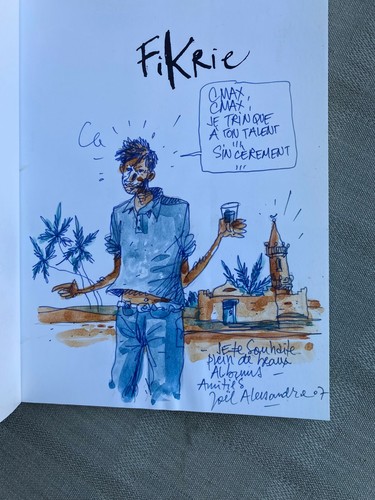 FiKRie
CMAX,
CMAX,
JE TRINQUE
À TON TALENT
SINCÈREMENT
...
JE te Souhaite
plein de beaux
Albums
Amitiés
Joël Alessandra 07